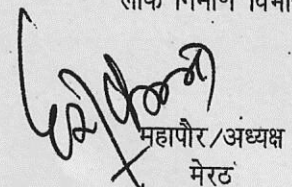 लोक निर्माण विभाग
महापौर/अध्यक्ष
मेरठ